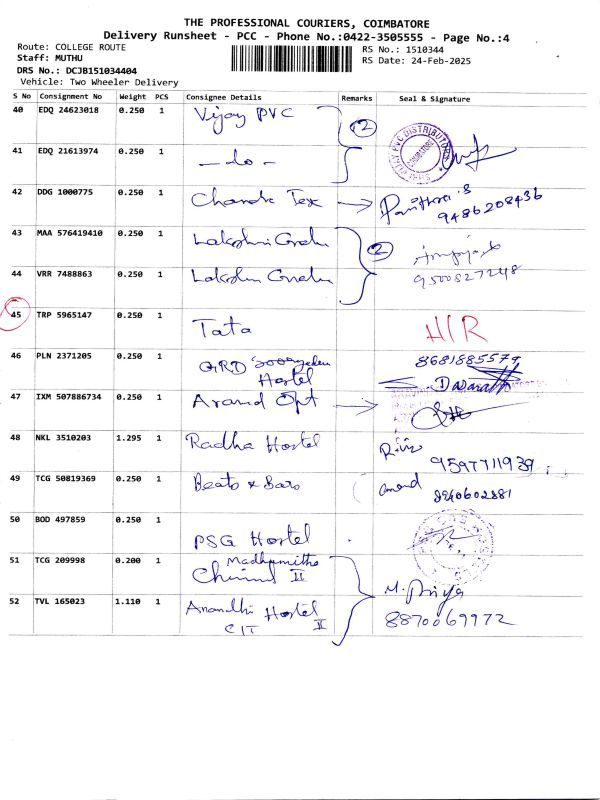 THE PROFESSIONAL COURIERS, COIMBATORE
Delivery Runsheet - PCC - Phone No.:0422-3505555 - Page No.:4
Route: COLLEGE ROUTE
RS No.: 1510344
Staff: MUTHU
RS Date: 24-Feb-2025
DRS No.: DCJB151034404
Vehicle: Two Wheeler Delivery
S No Consignment No Weight PCS Consignee Details Remarks Seal & Signature
40 EDQ 24623018 0.250 1 Vijay PVC
2
41 EDQ 21613974 0.250 1 - do -
VIJAY PVC DISTRIBUTORS
COIMBATORE
42 DDG 1000775 0.250 1 Chandra Tex
9486208436
43 MAA 576419410 0.250 1 Lakshmi
2
44 VRR 7488863 0.250 1 Lakshmi
9500827248
45 TRP 5965147 0.250 1 Tata H/R
46 PLN 2371205 0.250 1 GRD Hostel
8681885579
47 IXM 507886734 0.250 1 Aravind Opt
48 NKL 3510203 1.295 1 Radha Hostel
9597711939
49 TCG 50819369 0.250 1 Beats & Bars
8940602881
50 BOD 497859 0.250 1 PSG Hostel
51 TCG 209998 0.200 1 Madhumitha
II
52 TVL 165023 1.110 1 Anandhi Hostel
CIT II
M. Priya
8870069972